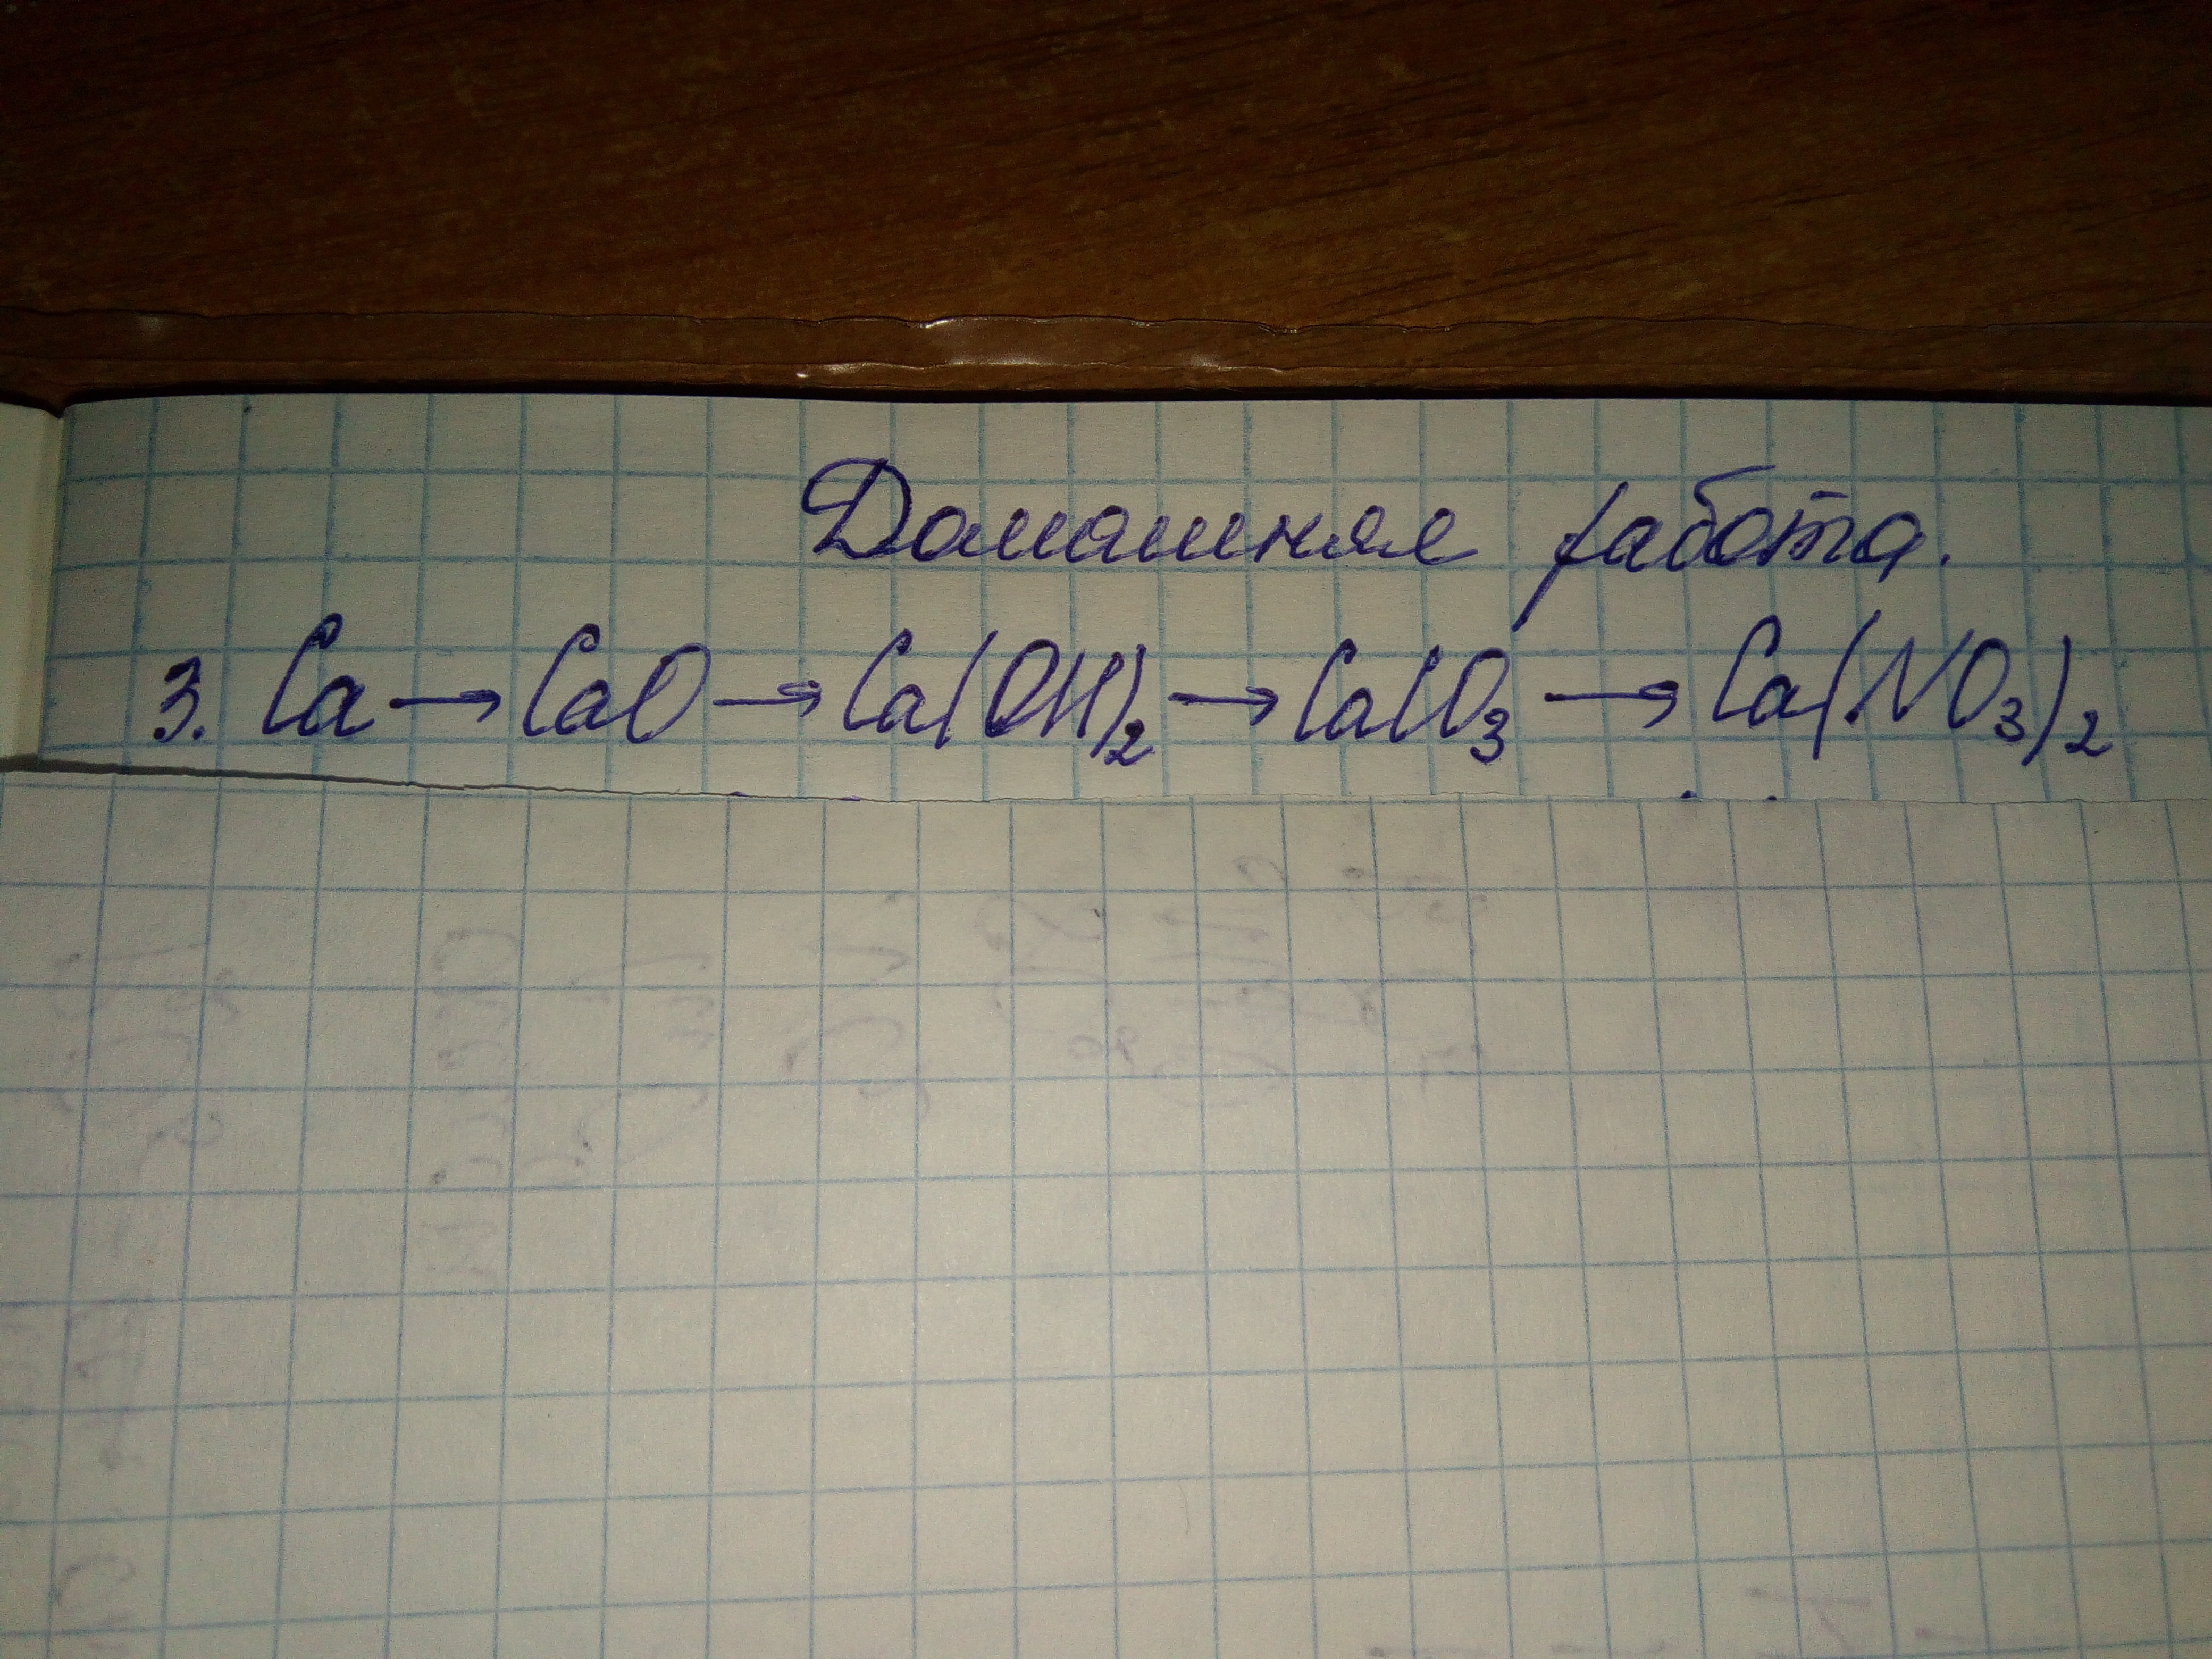 Домашняя работа.
3. Ca → CaO → Ca(OH)₂ → CaCO₃ → Ca(NO₃)₂